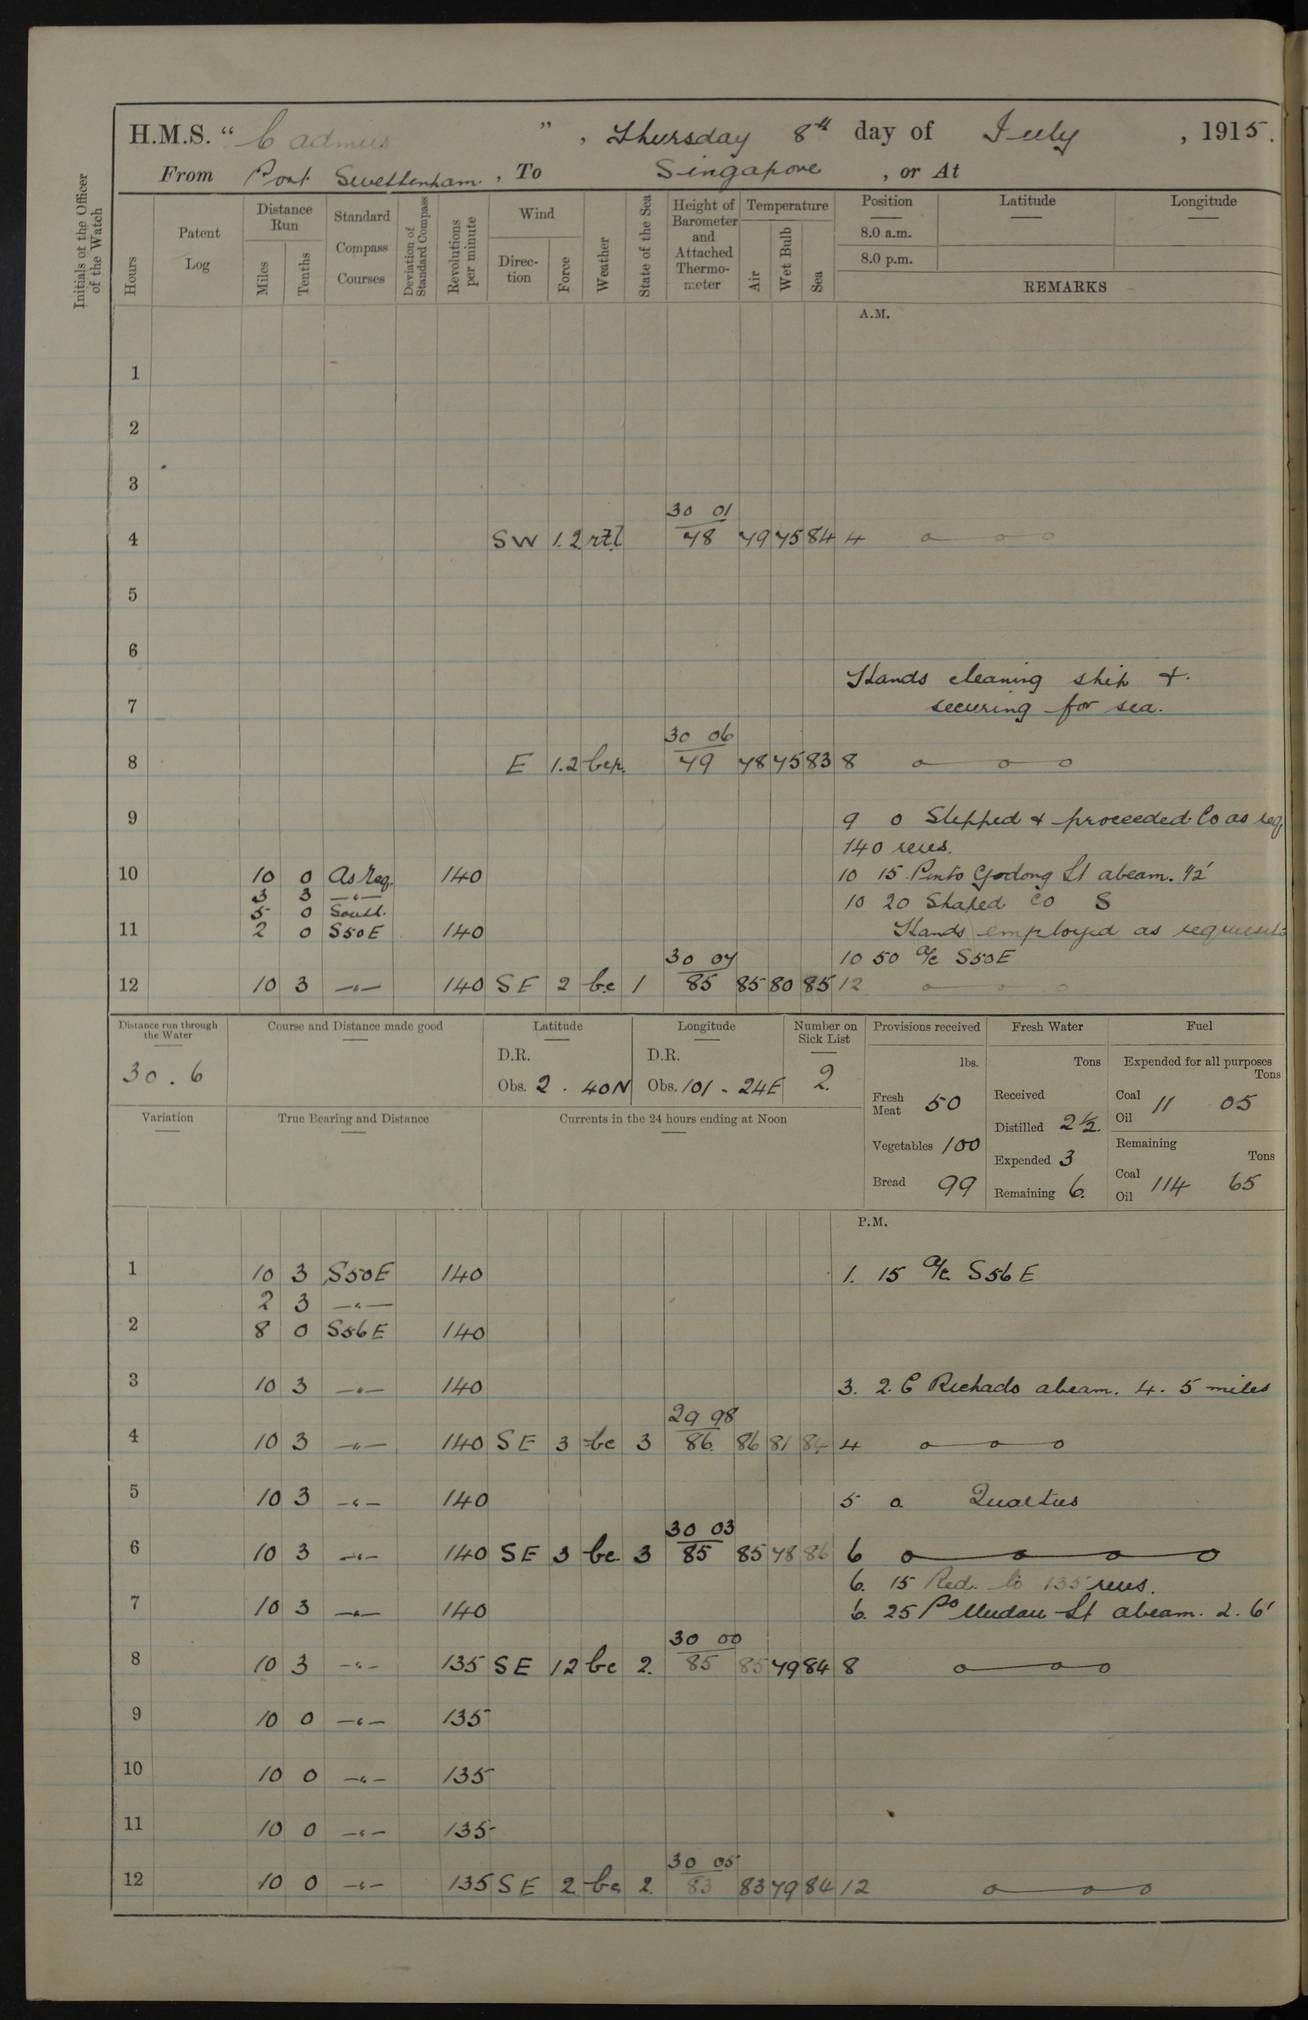 H.M.S. “ Cadmus ” , Thursday 8th day of July , 1915.
From Port Swettenham , To Singapore , or At
Initials of the Officer of the Watch
Hours
Patent Log
Distance Run
Miles
Tenths
Standard Compass Courses
Deviation of Standard Compass
Revolutions per minute
Wind
Direction
Force
Weather
State of the Sea
Height of Barometer and Attached Thermometer
Temperature
Air
Wet Bulb
Sea
Position
Latitude
Longitude
8.0 a.m.
8.0 p.m.
REMARKS
A.M.
1
2
3
30 01
4 SW 1.2 78 79 75 84 4
5
6
Hands cleaning ship &
7 securing for sea.
30 06
8 E 1.2 bcp. 79 78 75 83 8
9 9 0 Slipped & proceeded Co as req
140 revs.
10 10 0 As Req. 140 10 15 Gedong Lt abeam. 1/2'
3 3 —"— 10 20 Shaped Co S
5 0 South.
11 2 0 S50E 140 Hands employed as requisite
30 07 10 50 A/c S50E
12 10 3 —"— 140 SE 2 bc 1 85 85 80 85 12
Distance run through the Water
30.6
Course and Distance made good
Latitude
D.R.
Obs. 2 . 40N
Longitude
D.R.
Obs. 101 - 24E
Number on Sick List
2.
Provisions received
lbs.
Fresh Meat 50
Vegetables 100
Bread 99
Fresh Water
Tons
Received
Distilled 2½.
Expended 3
Remaining 6.
Fuel
Expended for all purposes
Tons
Coal 11 05
Oil
Remaining
Tons
Coal 114 65
Oil
Variation
True Bearing and Distance
Currents in the 24 hours ending at Noon
P.M.
1 10 3 S50E 140 1. 15 A/c S56E
2 3 —"—
2 8 0 S56E 140
3 10 3 —"— 140 3. 2. C Richado abeam. 4. 5 miles
29 98
4 10 3 —"— 140 SE 3 bc 3 86. 86 81 84 4
5 10 3 —"— 140 5 0 Quarters
30 03
6 10 3 —"— 140 SE 3 bc 3 85 85 78 86 6
6. 15 Red. to 135 revs.
7 10 3 —"— 140 6. 25 Po Undan Lt abeam. 2. 6'
30 00
8 10 3 —"— 135 SE 12 bc 2. 85 85 79 84 8
9 10 0 —"— 135
10 10 0 —"— 135
11 10 0 —"— 135
30 05
12 10 0 —"— 135 SE 2 bc 2. 83 83 79 84 12